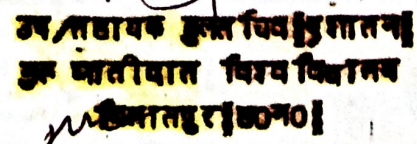 उप/सहायक कुलसचिव(प्रशासन)
गुरु घासीदास विश्व विद्यालय
बिलासपुर(छ0ग0)